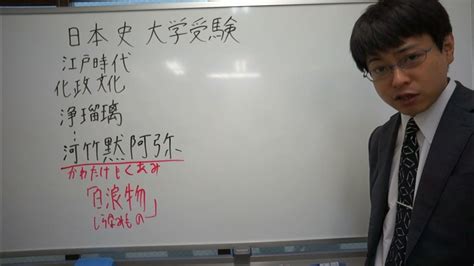 日本史 大学受験
江戸時代
化政文化
浄瑠璃
⋮
河竹黙阿弥
かわたけもくあみ
「白浪物」
しらなみもの